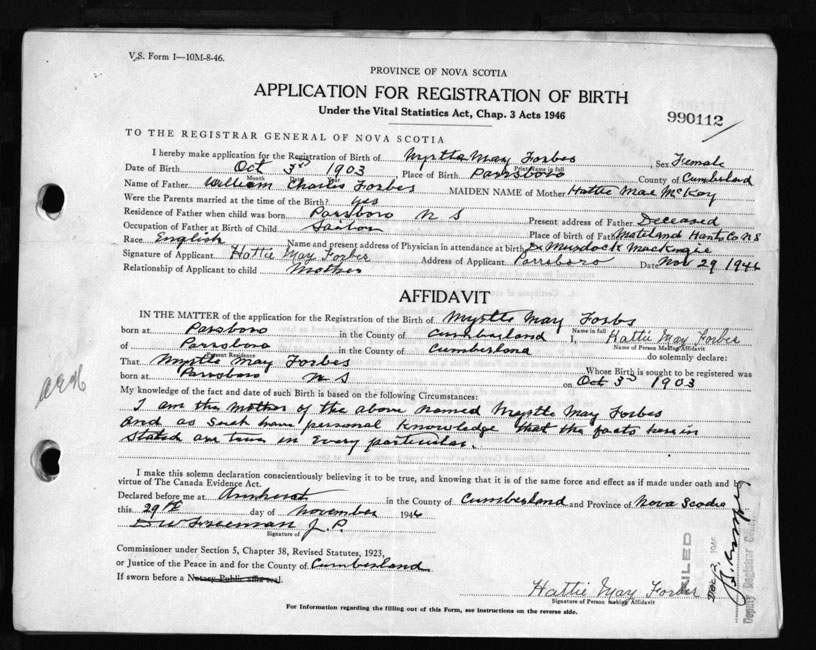 V.S. Form 1—10M-8-46.
PROVINCE OF NOVA SCOTIA
APPLICATION FOR REGISTRATION OF BIRTH
Under the Vital Statistics Act, Chap. 3 Acts 1946
990112
TO THE REGISTRAR GENERAL OF NOVA SCOTIA
I hereby make application for the Registration of Birth of Myrtle May Forbes, Sex Female
Print Name in full
Date of Birth Oct 3rd 1903, Place of Birth Parrsboro County of Cumberland
Month Day Year
Name of Father William Charles Forbes MAIDEN NAME of Mother Hattie Mae McKay
Were the Parents married at the time of the Birth? yes
Residence of Father when child was born Parrsboro N S Present address of Father Deceased
Occupation of Father at Birth of Child Sailor Place of birth of Father Maitland Hants Co N S
Race English Name and present address of Physician in attendance at birth Dr Murdock MacKenzie
Signature of Applicant Hattie May Forbes Address of Applicant Parrsboro Date Nov 29 1946
Relationship of Applicant to child Mother
AFFIDAVIT
IN THE MATTER of the application for the Registration of the Birth of Myrtle May Forbs
Name in full
born at Parsboro in the County of Cumberland I, Hattie May Forbes
Name of Person Making Affidavit
of Parrsboro in the County of Cumberland do solemnly declare:
Present Residence
That Myrtle May Forbes Whose Birth is sought to be registered was
born at Parrsboro N S on Oct 3rd 1903
My knowledge of the fact and date of such Birth is based on the following Circumstances:
I am the mother of the above named Myrtle May Forbes
and as such have personal knowledge that the facts herein
stated are true in every particular.
I make this solemn declaration conscientiously believing it to be true, and knowing that it is of the same force and effect as if made under oath and by
virtue of The Canada Evidence Act.
Declared before me at Amherst in the County of Cumberland and Province of Nova Scotia
this 29th day of November 1946
D W Freeman J. P.
Signature of
Commissioner under Section 5, Chapter 38, Revised Statutes, 1923,
or Justice of the Peace in and for County of Cumberland
If sworn before a Notary Public affix seal.
Hattie May Forbes
Signature of Person making Affidavit
For Information regarding the filling out of this Form, see instructions on the reverse side.
FILED
Deputy Registrar General